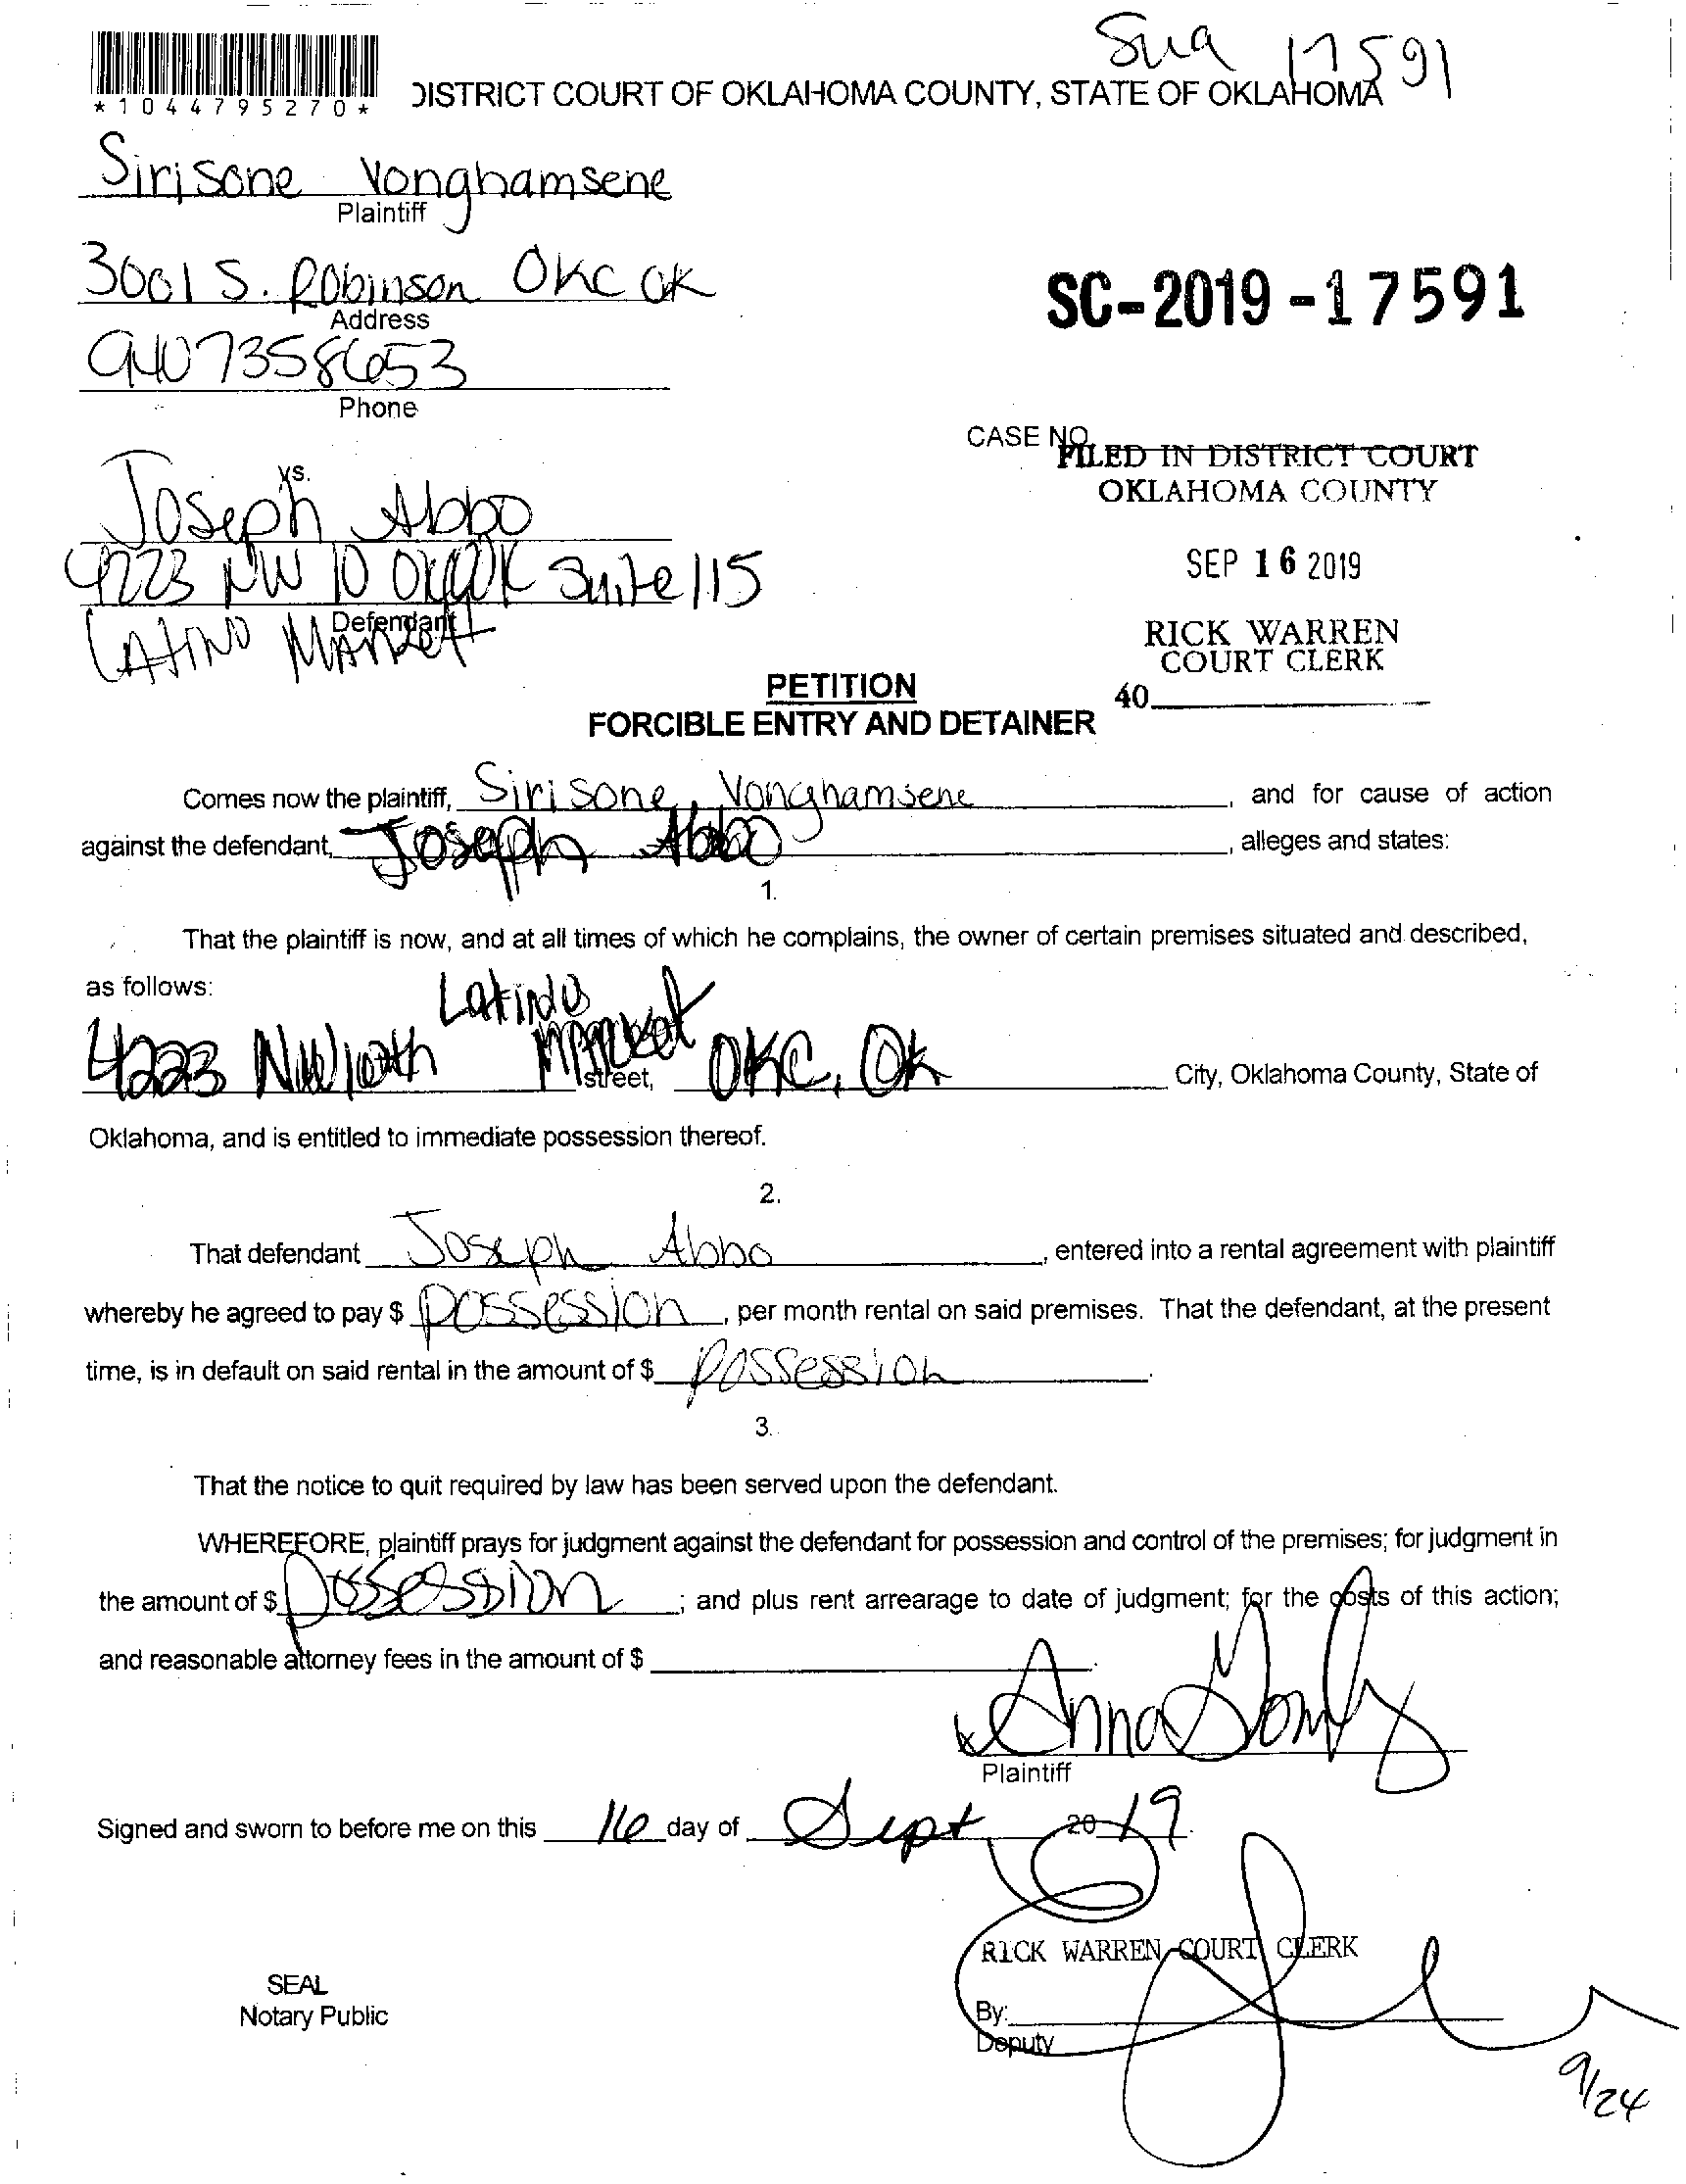 Sua 17591
*1044795270*
DISTRICT COURT OF OKLAHOMA COUNTY, STATE OF OKLAHOMA
Sirisone Vonghamsene
Plaintiff
3001 S. Robinson OKC OK
Address
9407358653
Phone
SC-2019-17591
CASE NO.
FILED IN DISTRICT COURT
OKLAHOMA COUNTY
vs.
Joseph Abbo
4223 NW 10 OKC OK Suite 115
Defendant
LATINO MARKET
SEP 16 2019
RICK WARREN
COURT CLERK
40
PETITION
FORCIBLE ENTRY AND DETAINER
Comes now the plaintiff, Sirisone Vonghamsene, and for cause of action
against the defendant, Joseph Abbo, alleges and states:
1.
That the plaintiff is now, and at all times of which he complains, the owner of certain premises situated and described,
as follows:
Latino
4223 NW 10th Market street, OKC, OK City, Oklahoma County, State of
Oklahoma, and is entitled to immediate possession thereof.
2.
That defendant Joseph Abbo, entered into a rental agreement with plaintiff
whereby he agreed to pay $ possession, per month rental on said premises. That the defendant, at the present
time, is in default on said rental in the amount of $ possession.
3.
That the notice to quit required by law has been served upon the defendant.
WHEREFORE, plaintiff prays for judgment against the defendant for possession and control of the premises; for judgment in
the amount of $ possession; and plus rent arrearage to date of judgment; for the costs of this action;
and reasonable attorney fees in the amount of $
x Anna
Plaintiff
Signed and sworn to before me on this 16 day of Sept, 2019.
RICK WARREN COURT CLERK
SEAL
Notary Public
By:
Deputy
9/24